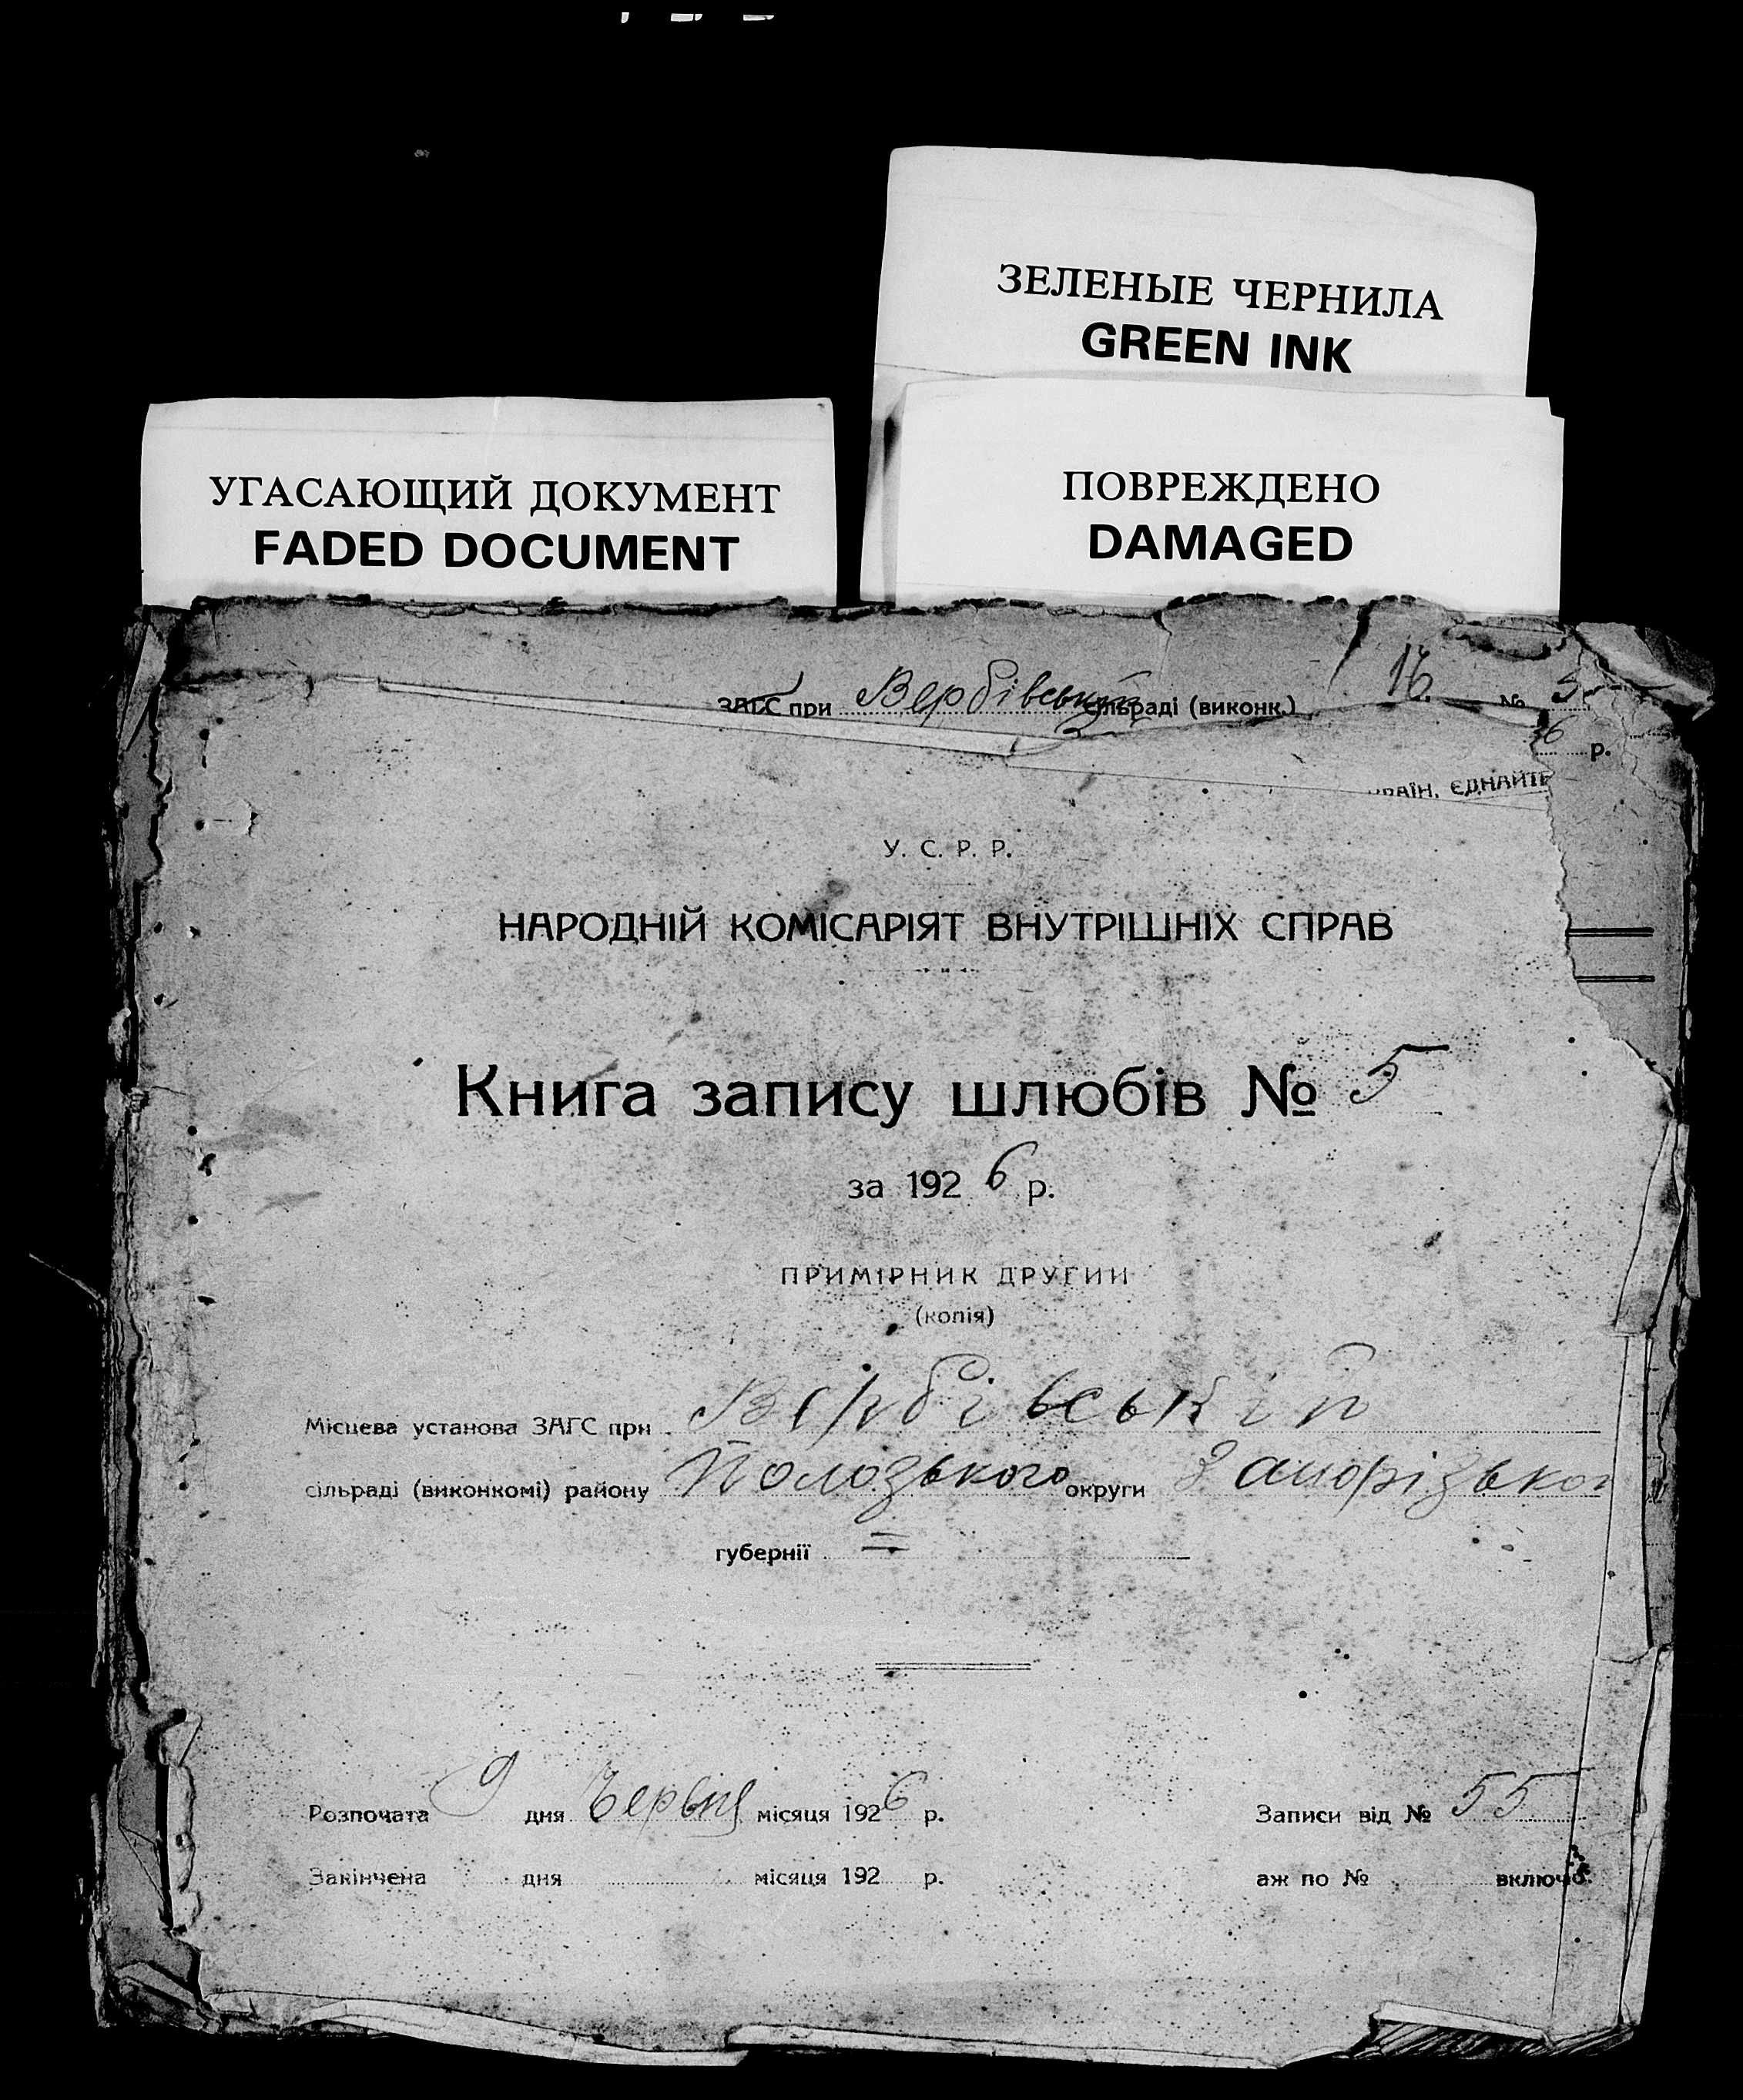 ЗЕЛЕНЫЕ ЧЕРНИЛА
GREEN INK
УГАСАЮЩИЙ ДОКУМЕНТ
FADED DOCUMENT
ПОВРЕЖДЕНО
DAMAGED
ЗАГС при Вербівській сільраді (виконк.) 16 № 5
6 р.
РАЇН, ЄДНАЙТЕ
У. С. Р. Р.
НАРОДНІЙ КОМІСАРІЯТ ВНУТРІШНІХ СПРАВ
Книга запису шлюбів № 5
за 1926 р.
ПРИМІРНИК ДРУГИЙ
(копія)
Місцева установа ЗАГС при Вербівській
сільраді (виконкомі) району Полозького округи Запорізької
губернії =
Розпочата 9 дня Червня місяця 1926 р. Записи від № 55
Закінчена дня місяця 192 р. аж по № включо.